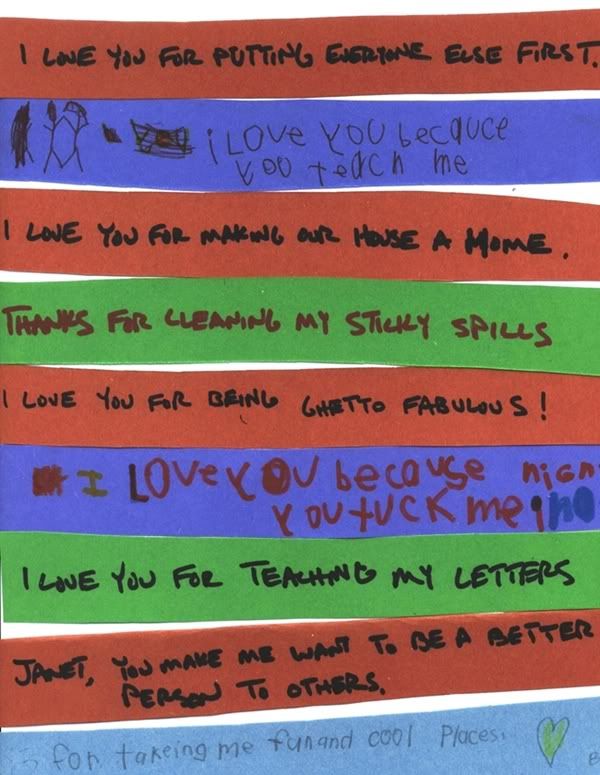 I LOVE YOU FOR PUTTING EVERYONE ELSE FIRST.
i LOVe YOU becauce
YOO teach me
I LOVE YOU FOR MAKING OUR HOUSE A HOME.
THANKS FOR CLEANING MY STICKY SPILLS
I LOVE YOU FOR BEING GHETTO FABULOUS!
I LOVe YOU because
YOU tUCK me in
I LOVE YOU FOR TEACHING MY LETTERS
JANET, YOU MAKE ME WANT TO BE A BETTER
PERSON TO OTHERS.
for takeing me fun and cool Places.